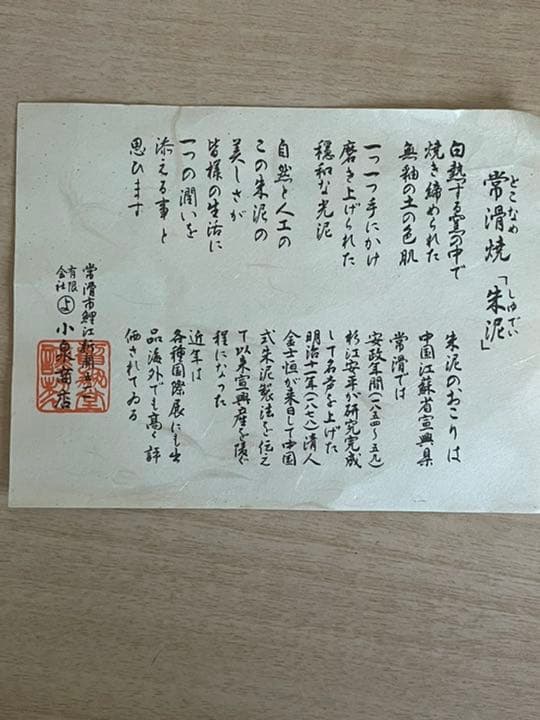 とこなめ
常滑焼
しゅでい
「朱泥」
白熱する窯の中で
焼き締められた
無釉の土の色肌
一つ一つ手にかけ
磨き上げられた
穏和な光泥
自然と人工の
この朱泥の
美しさが
皆様の生活に
一つの潤いを
添える事と
思ひます
朱泥のおこりは
中国江蘇省宣興県
常滑では
安政年間(一八五四〜五九)
杉江安平が研究完成
して名声を上げた
明治十一年(一八七八)清人
金士恒が来日して中国
式朱泥製法を伝え
て以来宣興産を陵ぐ
程になった
近年は
各種国際展にも出
品海外でも高く評
価されてゐる
常滑市鯉江新開
有限
会社
よ
小泉商店